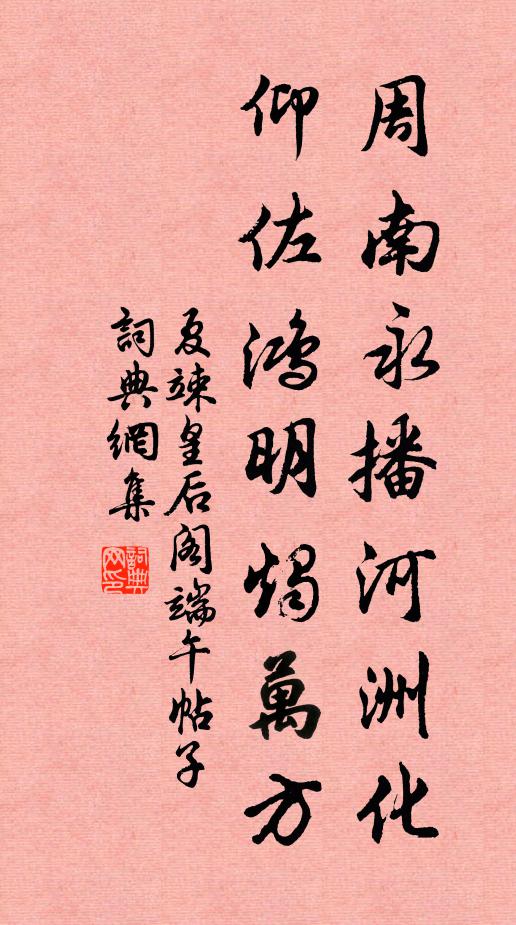 周南永播河洲化
仰佐鸿明烛萬方
夏竦皇后阁端午帖子
詞典網集
詞典网印